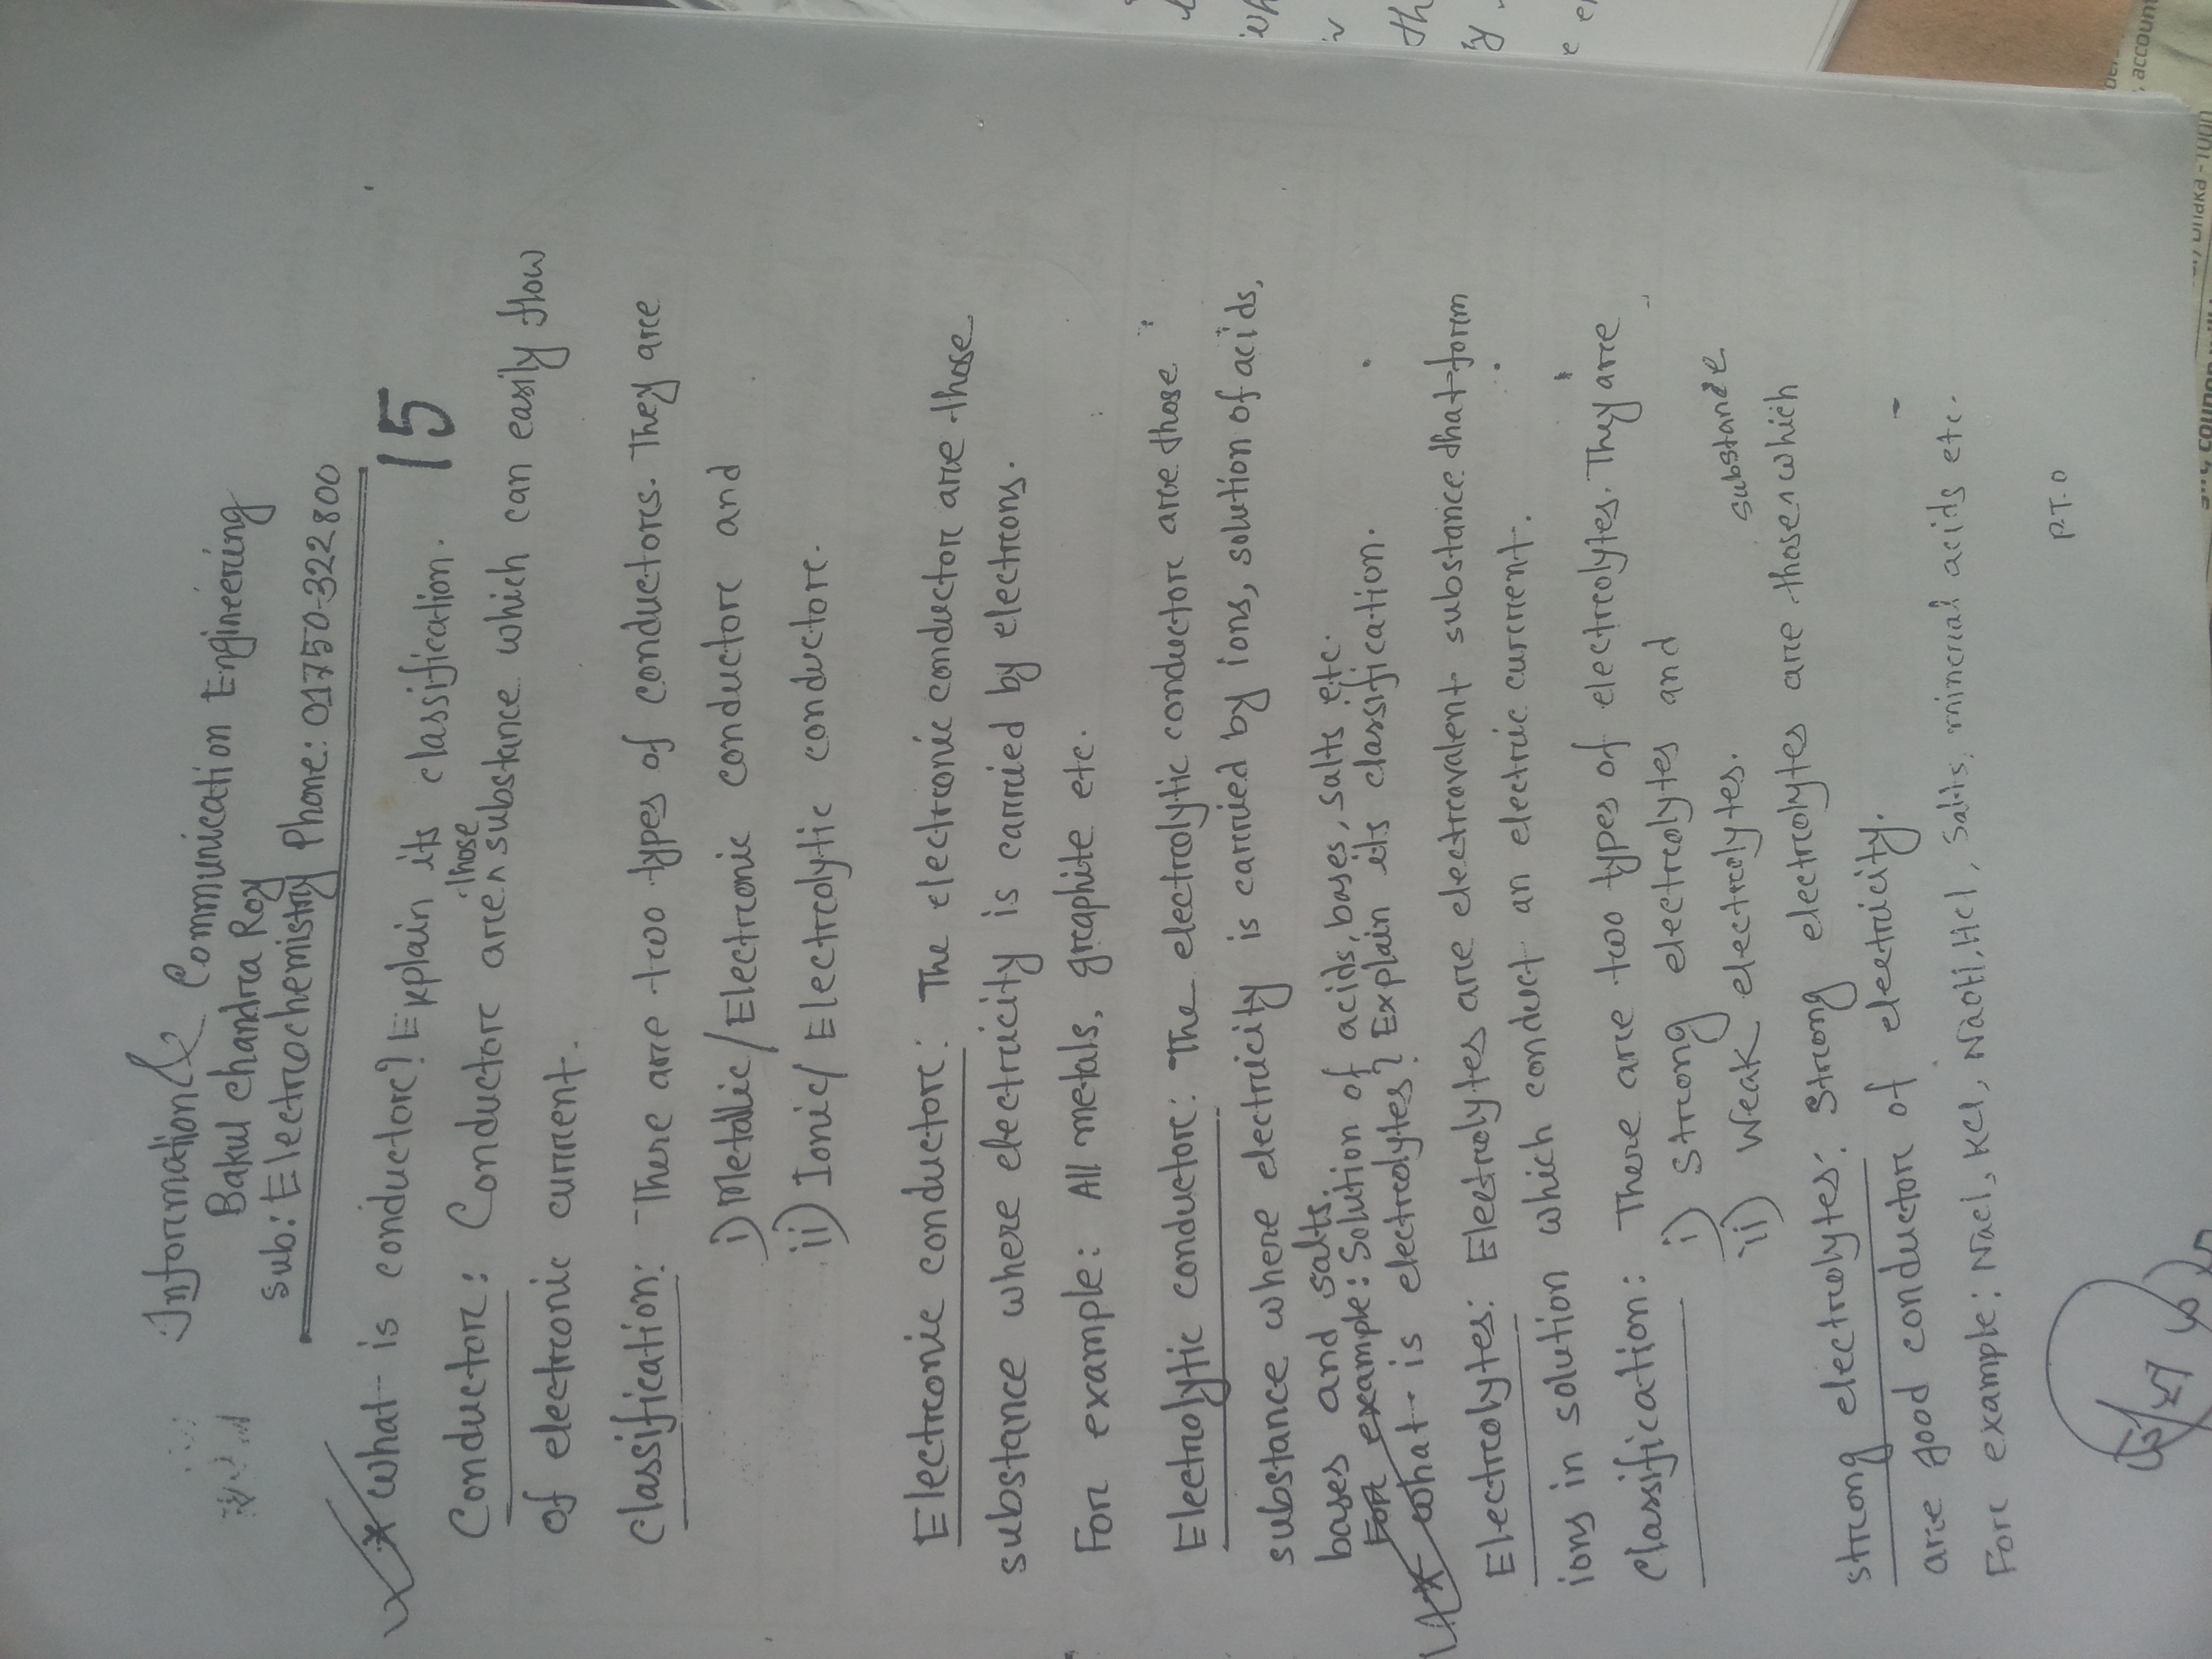 Information & Communication Engineering
Bakul chandra Roy
Sub: Electrochemistry Phone: 01750-322800
15
* What is conductor? Explain its classification.
Conductor: Conductor are those substance which can easily flow
of electronic current.
Classification: There are two types of conductors. They are
i) Metallic/Electronic conductor and
ii) Ionic/Electrolytic conductor.
Electronic conductor: The electronic conductor are those
substance where electricity is carried by electrons.
For example: All metals, graphite etc.
Electrolytic conductor: The electrolytic conductor are those
substance where electricity is carried by ions, solution of acids,
bases and salts.
For example: Solution of acids, bases, salts etc.
* What is electrolytes? Explain its classification.
Electrolytes: Electrolytes are electrovalent substance that form
ions in solution which conduct an electric current.
Classification: There are two types of electrolytes. They are
i) Strong electrolytes and
ii) Weak electrolytes.
Strong electrolytes: Strong electrolytes are those substance which
are good conductor of electricity.
For example: NaCl, KCl, NaOH, HCl, Salts, mineral acids etc.
P.T.O